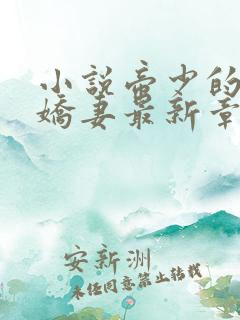 小说帝少的
娇妻最新章
安新洲
未经同意禁止转载